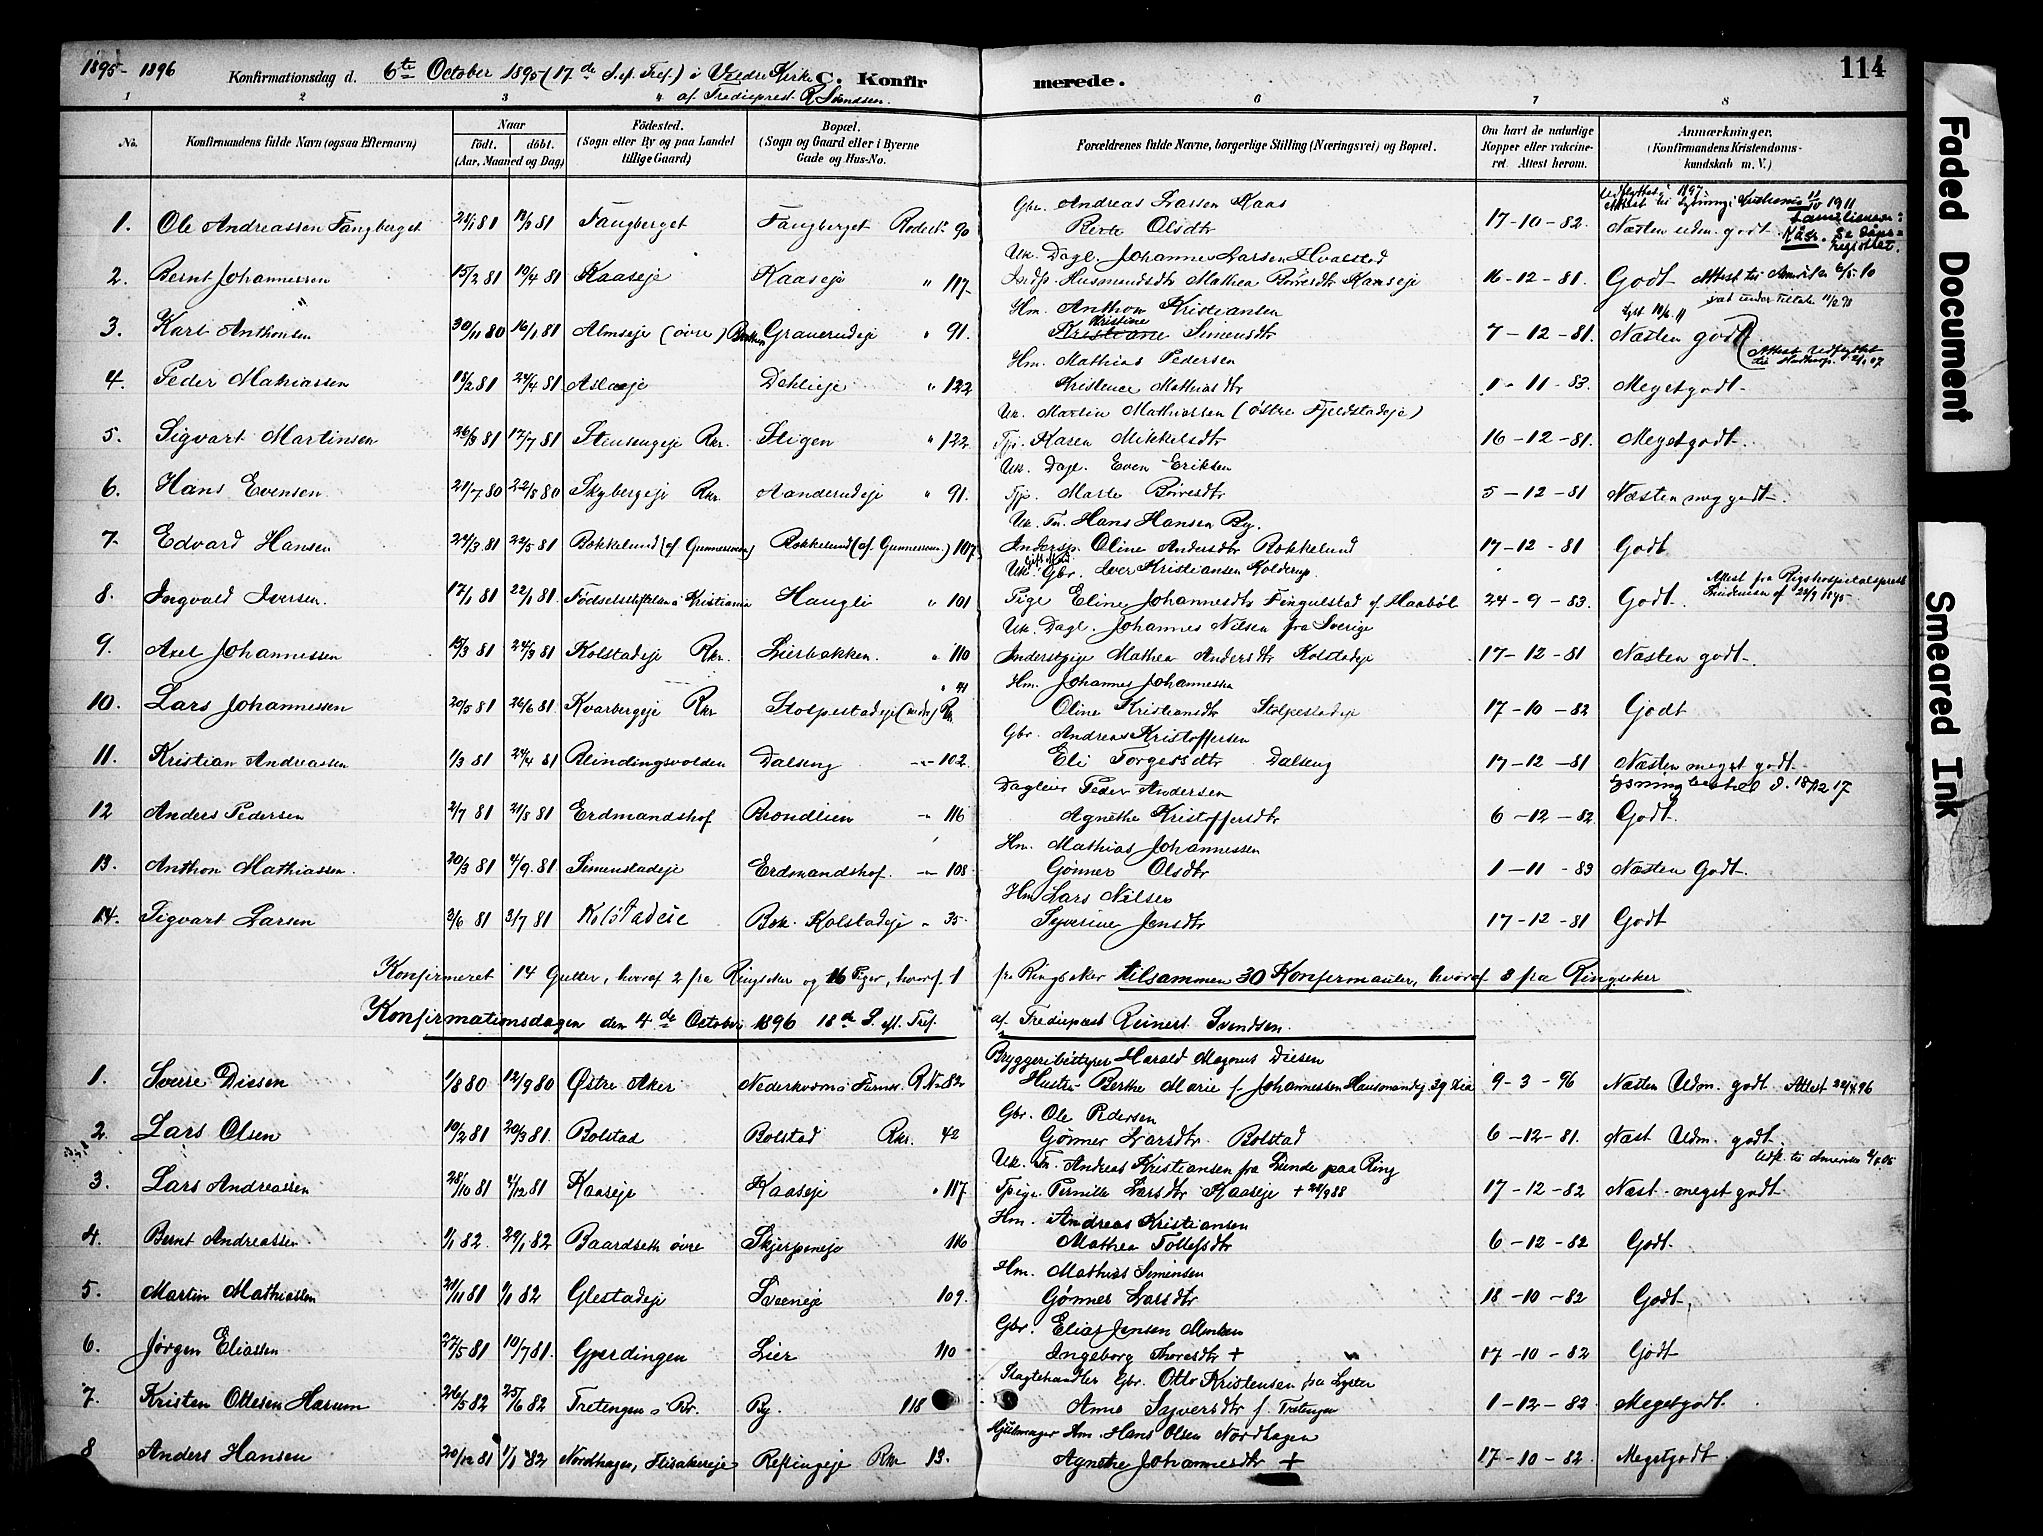 1895-1896 Konfirmationsdag d. 6te October 1895 (17de S. ef. Tref.) i Veldre Kirke C. Konfirmerede. 114
af Tredieprest R. Svendsen.
1 2 3 4 6 7 8
No. Konfirmandens fulde Navn (ogsaa Efternavn) Naar födt. döbt. (Aar, Maaned og Dag) Födested. (Sogn eller By og paa Landet tillige Gaard) Bopæl. (Sogn og Gaard eller i Byerne Gade og Hus-No. Forældrenes fulde Navne, borgerlige Stilling (Næringsvei) og Bopæl. Om havt de naturlige Kopper eller vakcineret. Attest herom. Anmærkninger. (Konfirmandens Kristendomskundskab m. V.)
Gbr. Andreas Larsen Kaas
1. Ole Andreassen Fangberget 81 81 Fangberget Fangberget 90 Berte Olsdtr 17-10-82. Næsten udm. godt.
Uk. Dagl. Johannes Larsen Hvalstad
2. Bernt Johannessen 15/2 81 19/4 81 Kaaseje Kaaseje " 117 Indp. Husmandsdtr Mathea Börresdtr Kaaseje 16-12-81. Godt
Hm. Anthon Kristiansen
3. Karl Anthonsen 30/11 80 16/1 81 Almseje (övre) Grauerudeje " 91. Kristiane Kristine Simensdtr 7-12-81. Næsten godt
Hm. Mathias Pedersen
4. Peder Mathiassen 18/2 81 24/4 81 Aslaeje Dehlieje " 122 Kristence Mathiasdtr 1-11-83. Megetgodt.
Uk. Martin Mathiassen (östre Fjeldstadeje)
5. Sigvart Martinsen 26/3 81 17/7 81 Stensengeje Rkr. Stigen " 122 Tp. Karen Mikkelsdtr 16-12-81. Megetgodt.
Uk. Dagl. Even Eriksen
6. Hans Evensen 21/7 80 22/8 80 Skybergeje Rkr. Aanderudeje " 91. Tp. Marte Börresdtr 5-12-81 Næsten meg godt.
Uk. Tn. Hans Hansen By.
7. Edvard Hansen 24/3 81 22/5 81 Bokkelund (af Gunnesveen) Rokkelund (af Gunnesveen) 107. Indersp. Oline Andersdtr Rokkelund 17-12-81 Godt
Uk. Gbr. Iver Kristiansen Kolderup.
8. Ingvald Iversen. 17/1 81 22/1 81 Födselsstiftelsen i Kristiania Haugli " 101 Pige Eline Johannesdtr Fingulstad af Maaböl 24-9-83. Godt. Attest fra Rigshospitalsprest
Uk. Dagl. Johannes Nilsen fra Sverige
9. Axel Johannessen 15/3 81 24/3 81 Kolstadeje Rkr. Lierbakken. " 110 Inderstpige Mathea Andersdtr Kolstadeje 17-12-81 Næsten godt.
Hm. Johannes Johannessen
10. Lars Johannessen 20/5 81 26/6 81 Kvarbergeje Rkr Stolpestadeje Rkr. " 41 Oline Kristiansdtr Stolpestadeje 17-10-82 Godt
Gbr. Andreas Kristoffersen
11. Kristian Andreassen 1/3 81 24/4 81 Blindingsvolden Dalseng 102. Eli Torgersdtr Dalseng 17-12-81 Næsten meget godt.
Dagleier Peder Andersen Lysning
12 Anders Pedersen 2/7 81 21/8 81 Erdmandshof Brondlien 116 Agnethe Kristoffersdtr 6-12-82 Godt.
Hm. Mathias Johannessen
13. Anthon Mathiassen. 20/3 81 4/9 81 Simenstadeje Erdmandshof. 108 Gönner Olsdtr 1-11-83 Næsten Godt.
Hm Lars Nilsen
14. Sigvart Larsen 3/6 81 3/7 81 Kolstadeie Bok. Kolstadeje 35 Syverine Jensdtr 17-12-81 Godt
Konfirmeret 14 Gutter, hvoraf 2 fra Ringsaker og 16 Piger, hvoraf 1 fra Ringsaker tilsammen 30 Konfirmanter, hvoraf 3 fra Ringsaker
Konfirmationsdagen den 4de October 1896 18de S. ef. Tref. af Tredieprest Reinert Svendsen.
Bryggeribestyrer Harald Magnus Diesen
1. Sverre Diesen 1/8 80 12/9 80 Østre Aker Nederkvern i Furnes. R. N. 82 Hustru Berthe Marie f. Johannessen 9-3-96 Næsten Udm. godt Attest 22/4 96
Gbr. Ole Pedersen
2. Lars Olsen 10/2 81 20/3 81. Bolstad Bolstad Rkr. 42 Gönner Larsdtr Bolstad 6-12-81. Næst Udm. godt.
Uk. Tn. Andreas Kristiansen fra Lunde paa Ring
3. Lars Andreassen 28/10 81 4/12 81 Kaaseje Kaaseje " 117 Tpige Pernille Larsdtr Kaaseje + 17-12-82 Næst. meget godt
Hm. Andreas Kristiansen
4. Bernt Andreassen 1/1 82. 29/1 82 Baardseth övre Skjerpeneje 116 Mathea Tollefsdtr 6-12-82 Godt.
Hm. Mathias Simensen
5. Martin Mathiassen 21/11 81 1/1 82 Glestadeje Sveeneje 109. Gönner Larsdtr 18-10-82 Godt,
Gbr. Elias Jensen
6. Jørgen Eliassen 27/5 81 10/7 81. Gjerdingen Lier 110 Ingeborg Thoresdtr + 17-10-82 Godt
Slagtehandler Gbr. Otto Kristensen fra Lyster
7. Kristen Ottesen Hasum 26/5 82 25/6 82 Tretengen i Br. By. 118 Anne Syversdtr f. Tretengen 1-12-82 Megetgodt.
Hjulmager Hm. Hans Olsen Nordhagen
8 Anders Hansen 20/12 81 1/1 82 Nordhagen, Flisakereje Reflingeje Rkr 13. Agnethe Johannesdtr + 17-10-82. Megetgodt
Faded Document
Smeared Ink